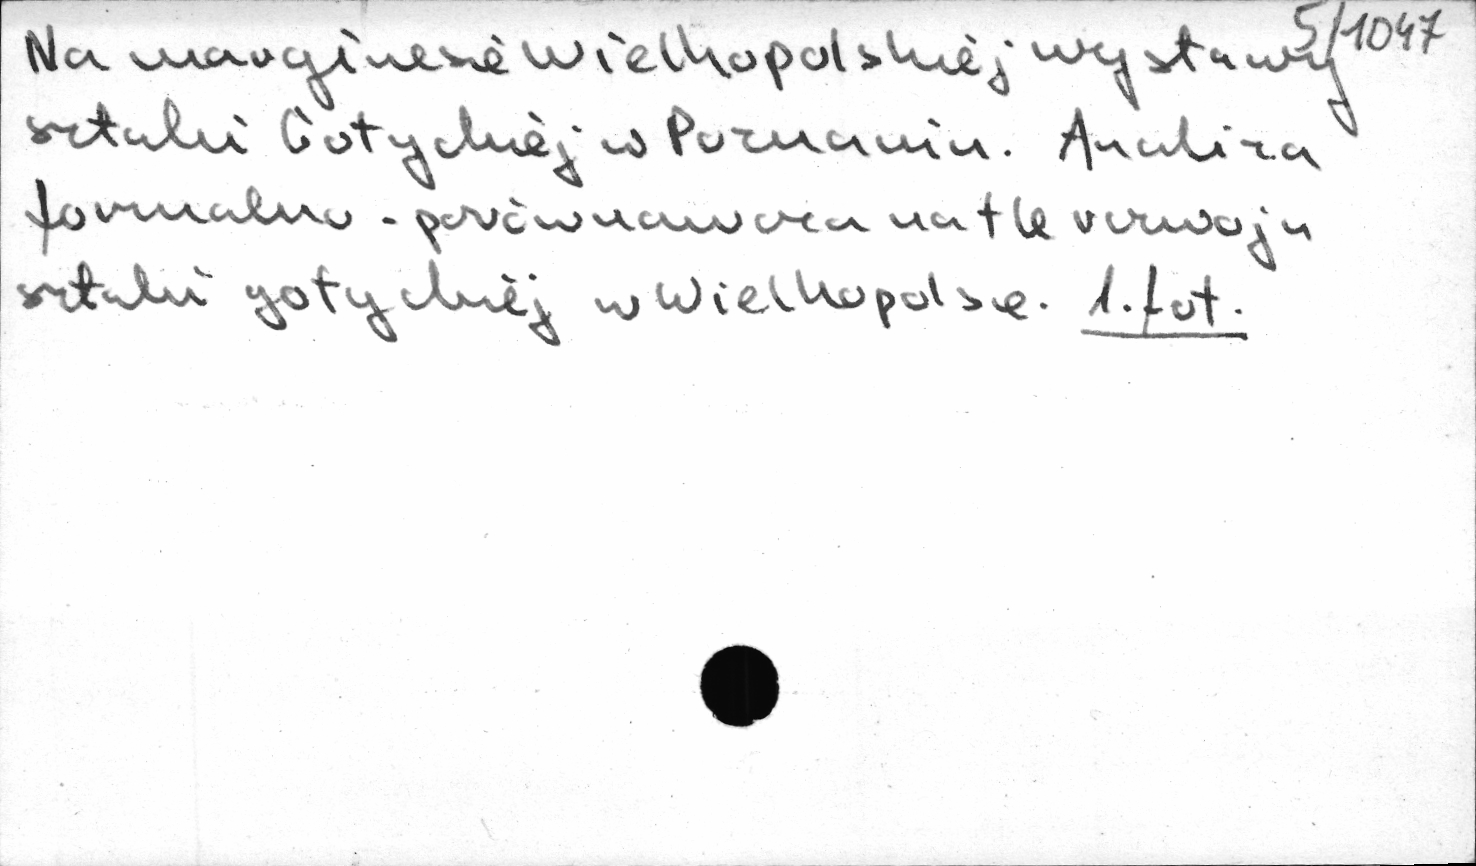 5/1047
Na marginesie Wielkopolskiej wystawy
sztuki Gotyckiej w Poznaniu. Analiza
formalno - porównawcza na tle rozwoju
sztuki gotyckiej w Wielkopolsce. 1. fot.